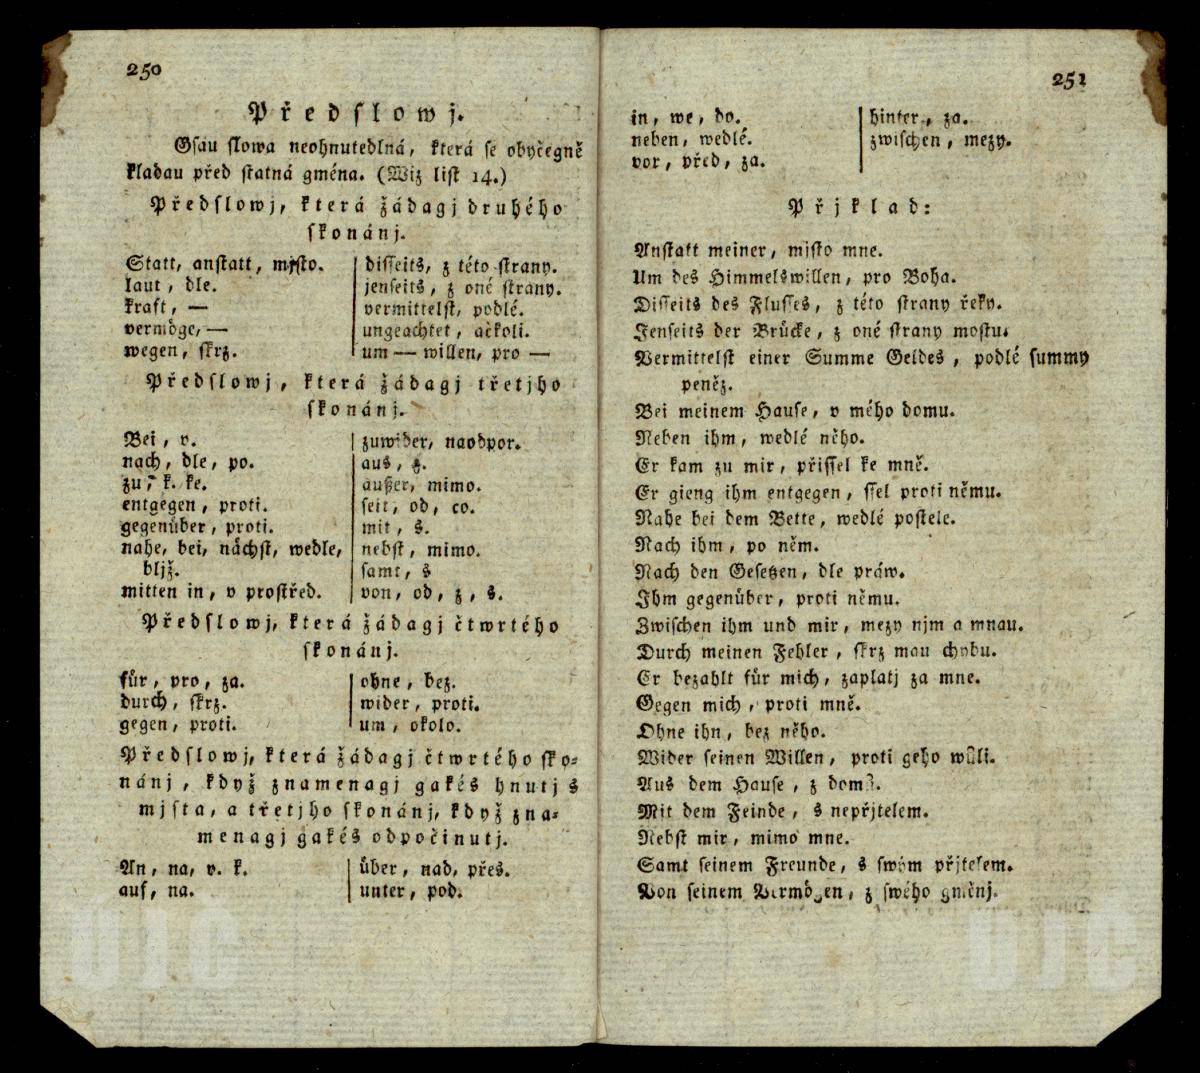 250
Předslowj.
Gsau slowa neohnutedlná, která se obyčegně
kladau před statná gména. (Wiz list 14.)
Předslowj, která žádagj druhého
skonánj.
Statt, anstatt, mjsto.
laut, dle.
kraft, —
vermöge, —
wegen, skrz.
disseits, z této strany.
jenseits, z oné strany.
vermittelst, podlé.
ungeachtet, ačkoli.
um — willen, pro —
Předslowj, která žádagj třetjho
skonánj.
Bei, v.
nach, dle, po.
zu, k. ke.
entgegen, proti.
gegenüber, proti.
nahe, bei, nächst, wedle,
bljž.
mitten in, v prostřed.
zuwider, naodpor.
aus, z.
außer, mimo.
seit, od, co.
mit, s.
nebst, mimo.
samt, s
von, od, z, s.
Předslowj, která žádagj čtwrtého
skonánj.
für, pro, za.
durch, skrz.
gegen, proti.
ohne, bez.
wider, proti.
um, okolo.
Předslowj, která žádagj čtwrtého sko-
nánj, když znamenagj gakés hnutj s
mjsta, a třetjho skonánj, když zna-
menagj gakés odpočinutj.
An, na, v. k.
auf, na.
über, nad, přes.
unter, pod.
251
in, we, do.
neben, wedlé.
vor, před, za.
hinter, za.
zwischen, mezy.
Přjklad:
Anstatt meiner, mjsto mne.
Um des Himmelswillen, pro Boha.
Disseits des Flusses, z této strany řeky.
Jenseits der Brücke, z oné strany mostu.
Vermittelst einer Summe Geldes, podlé summy
peněz.
Bei meinem Hause, v mého domu.
Neben ihm, wedlé něho.
Er kam zu mir, přissel ke mně.
Er gieng ihm entgegen, ssel proti němu.
Nahe bei dem Bette, wedlé postele.
Nach ihm, po něm.
Nach den Gesetzen, dle práw.
Ihm gegenüber, proti němu.
Zwischen ihm und mir, mezy njm a mnau.
Durch meinen Fehler, skrz mau chybu.
Er bezahlt für mich, zaplatj za mne.
Gegen mich, proti mně.
Ohne ihn, bez něho.
Wider seinen Willen, proti geho wůli.
Aus dem Hause, z domu.
Mit dem Feinde, s nepřjtelem.
Nebst mir, mimo mne.
Samt seinem Freunde, s swým přjtelem.
Von seinem Vermögen, z swého gměnj.
UJC
UJC